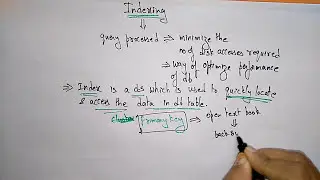 Indexing
⇓
query processed ⇒ minimize the
no of disk accesses required
⇒ way of optimize performance
of db
⇒ Index is a ds which is used to quickly locate
& access the data in db table.
Primary key ⇒ open text book
⇓
back